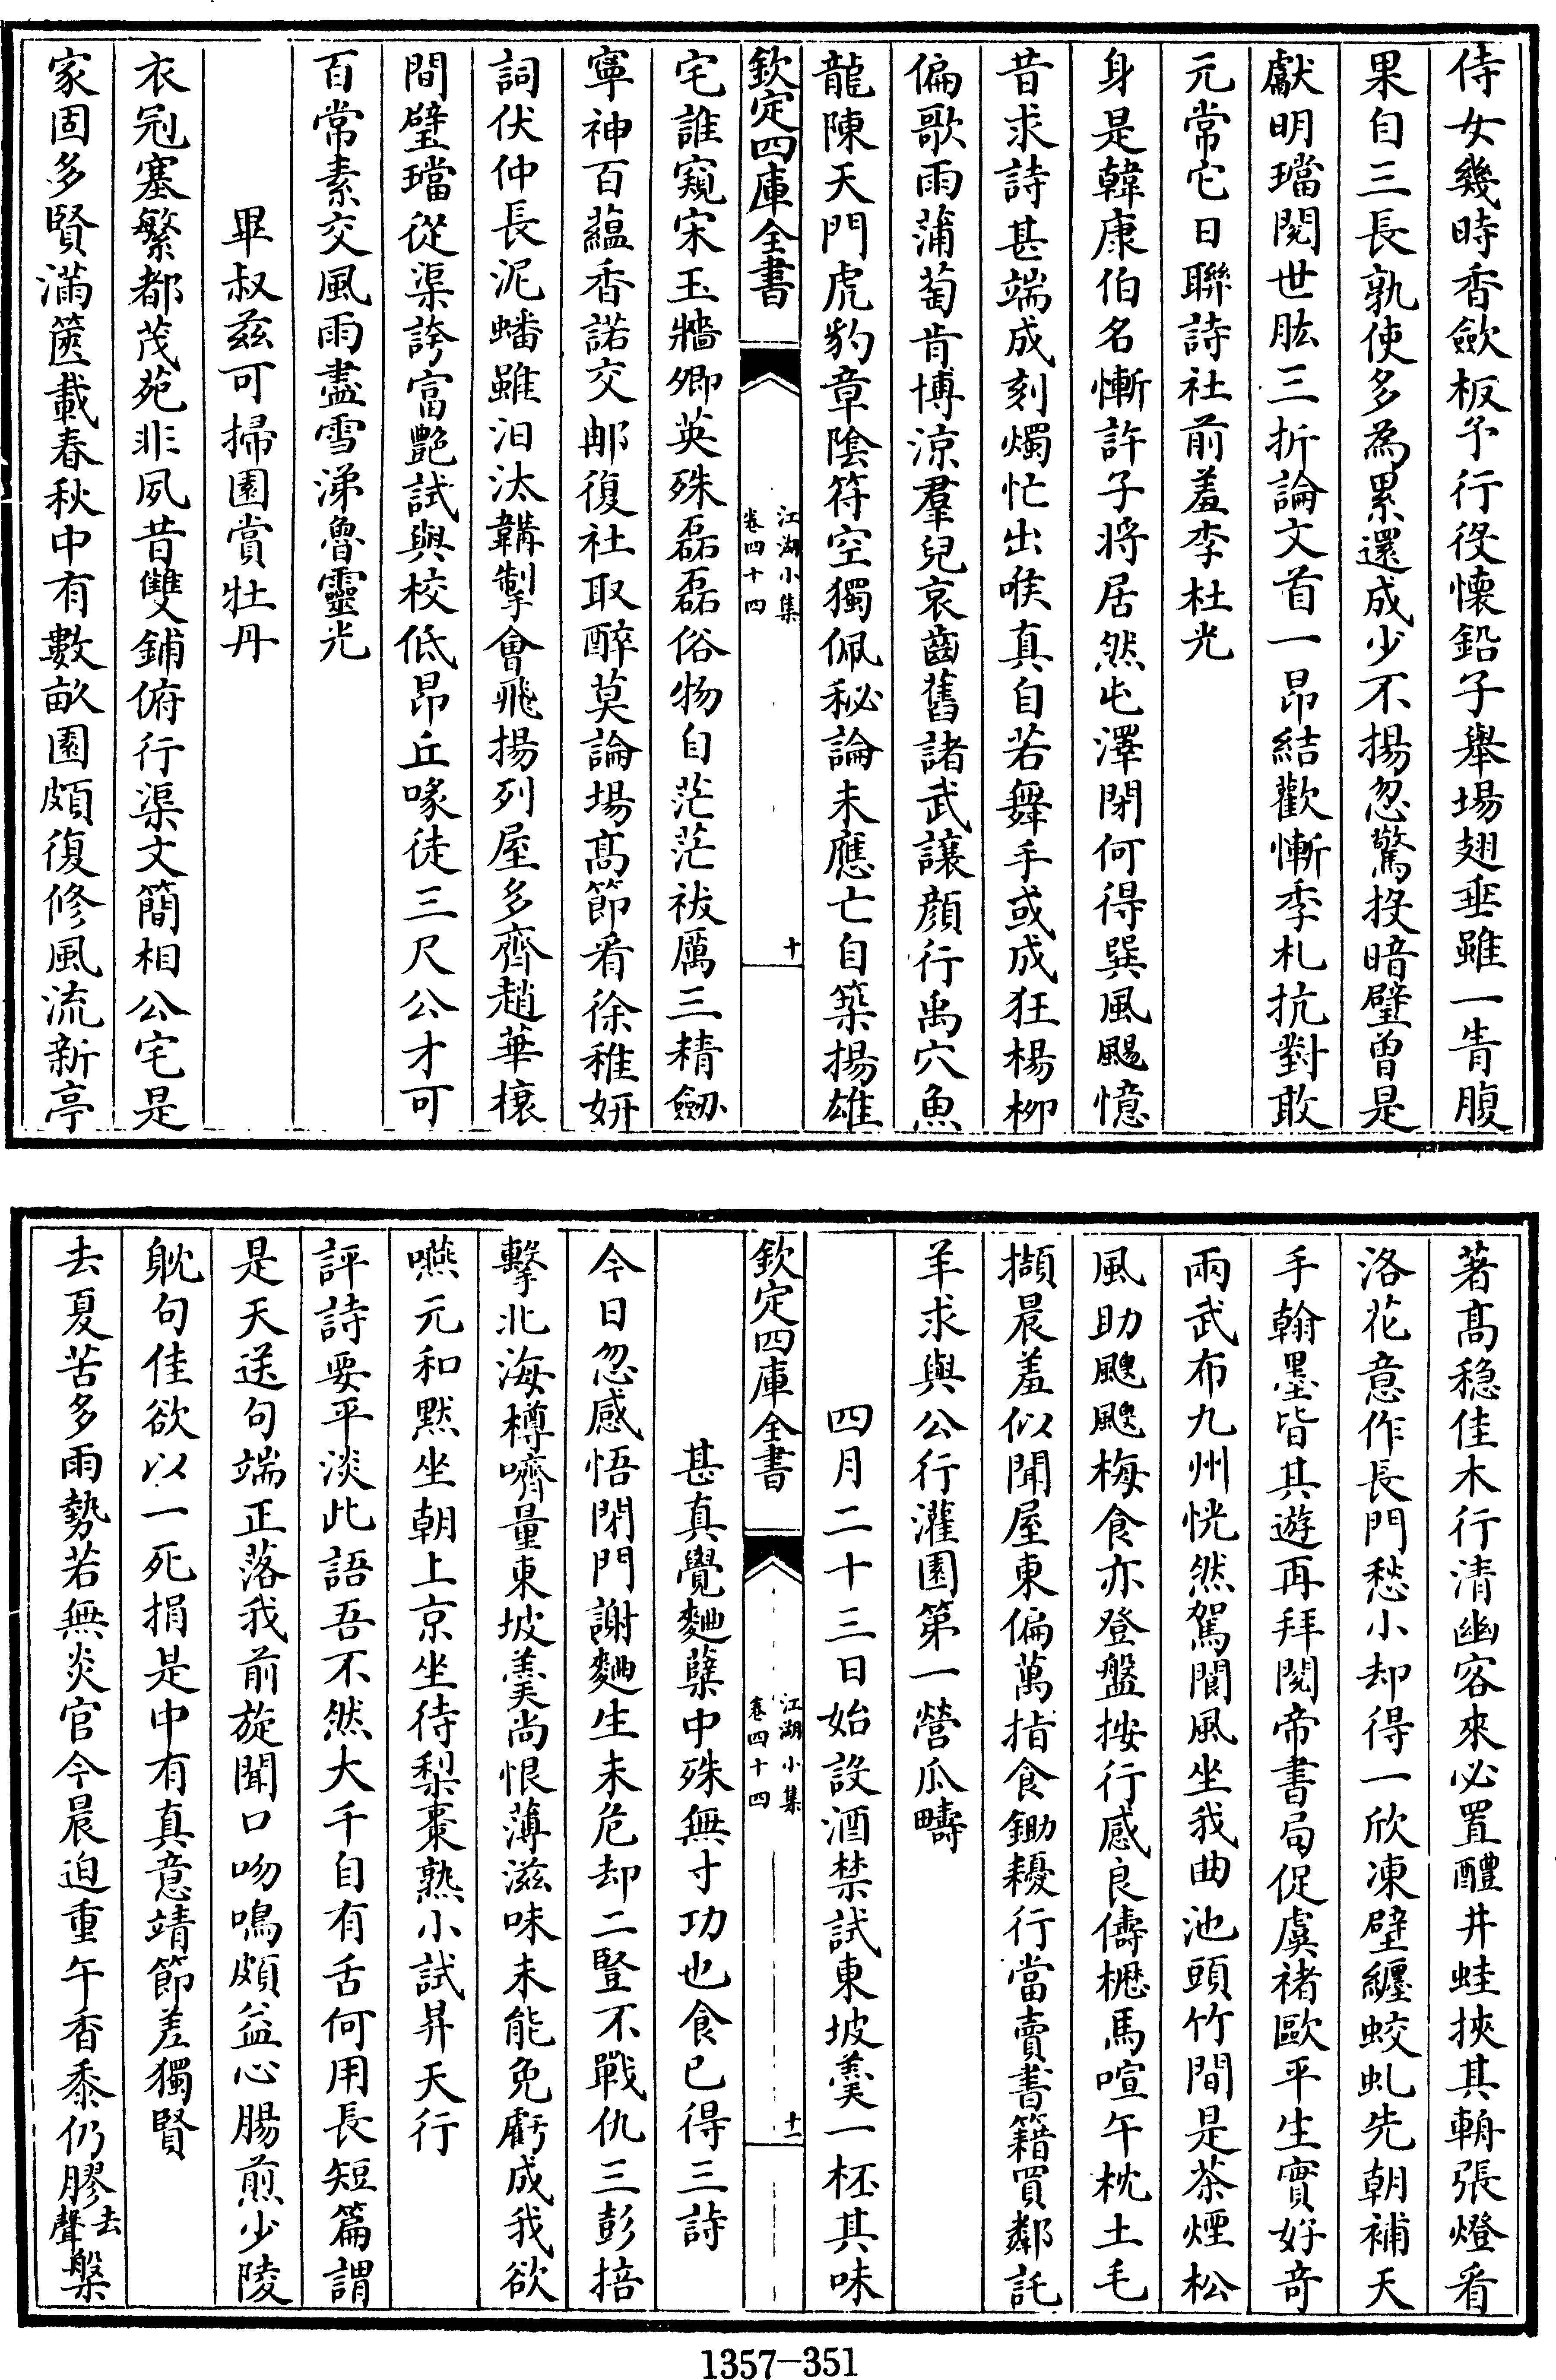 侍女幾時香歛板予行役懷鉛子舉場翅垂雖一眚腹
果自三長孰使多為累還成少不揚忽驚投暗璧曽是
獻明璫閱世肱三折論文首一昂結歡慚季札抗對敢
元常它日聯詩社前羞李杜光
身是韓康伯名慚許子將居然屯澤閉何得巽風颺憶
昔求詩甚端成刻燭忙出喉真自若舞手或成狂楊柳
偏歌雨蒲萄肯博涼羣兒哀齒舊諸武讓顔行禹穴魚
龍陳天門虎豹章陰符空獨佩秘論未應亡自築揚雄
欽定四庫全書
江湖小集
卷四十四
十
宅誰窺宋玉牆卿英殊磊磊俗物自茫茫祓厲三精劒
寧神百藴香諾交邴復社取醉莫論場髙節看徐稚妍
詞伏仲長泥蟠雖汨汰韝掣會飛揚列屋多齊趙華榱
間璧璫從渠誇富艷試與校低昂丘喙徒三尺公才可
百常素交風雨盡雪涕魯靈光
畢叔茲可掃園賞牡丹
衣冠塞繁都茂苑非夙昔雙鋪俯行渠文簡相公宅是
家固多賢滿篋載春秋中有數畝園頗復修風流新亭
著髙穩佳木行清幽客來必置醴井蛙挾其輈張燈看
洛花意作長門愁小却得一欣凍壁纏蛟虬先朝補天
手翰墨皆其遊再拜閱帝書局促虞褚歐平生實好竒
兩武布九州恍然駕閬風坐我曲池頭竹間是茶煙松
風助颼颼梅食亦登盤按行感良儔櫪馬喧午枕土毛
擷晨羞似聞屋東偏萬指食鋤耰行當賣書籍買鄰託
羊求與公行灌園第一營瓜疇
四月二十三日始設酒禁試東坡羹一柸其味
欽定四庫全書
江湖小集
卷四十四
十一
甚真覺麯蘖中殊無寸功也食已得三詩
今日忽感悟閉門謝麯生未危却二豎不戰仇三彭掊
擊北海樽嚌量東坡羹尚恨薄滋味未能免虧成我欲
嚥元和黙坐朝上京坐待梨棗熟小試昇天行
評詩要平淡此語吾不然大千自有舌何用長短篇謂
是天送句端正落我前旋聞口吻鳴頗益心腸煎少陵
躭句佳欲以一死捐是中有真意靖節差獨賢
去夏苦多雨勢若無炎官今晨迫重午香黍仍膠去聲槃
1357-351